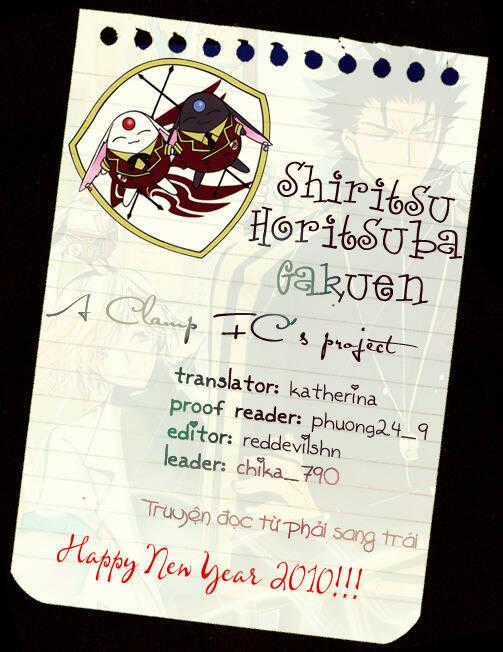 Shiritsu
Horitsuba
Gakuen
A Clamp FC's project
translator: katherina
proof reader: phuong24_9
editor: reddevilshn
leader: chika_790
Truyện đọc từ phải sang trái
Happy New Year 2010!!!